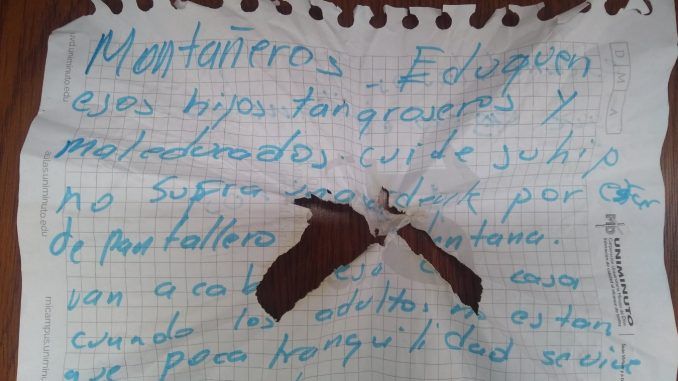 Montañeros. Eduquen
esos hijos tan groseros y
maleducados. cuide su hip
no sufra por
de pantallero ntana.
van a cab casa
cuando los adultos no estan
que poca tranquilidad se vive
uvd.uniminuto.edu
aulas.uniminuto.edu
micampus.unimin
D M A
UNIMINUTO